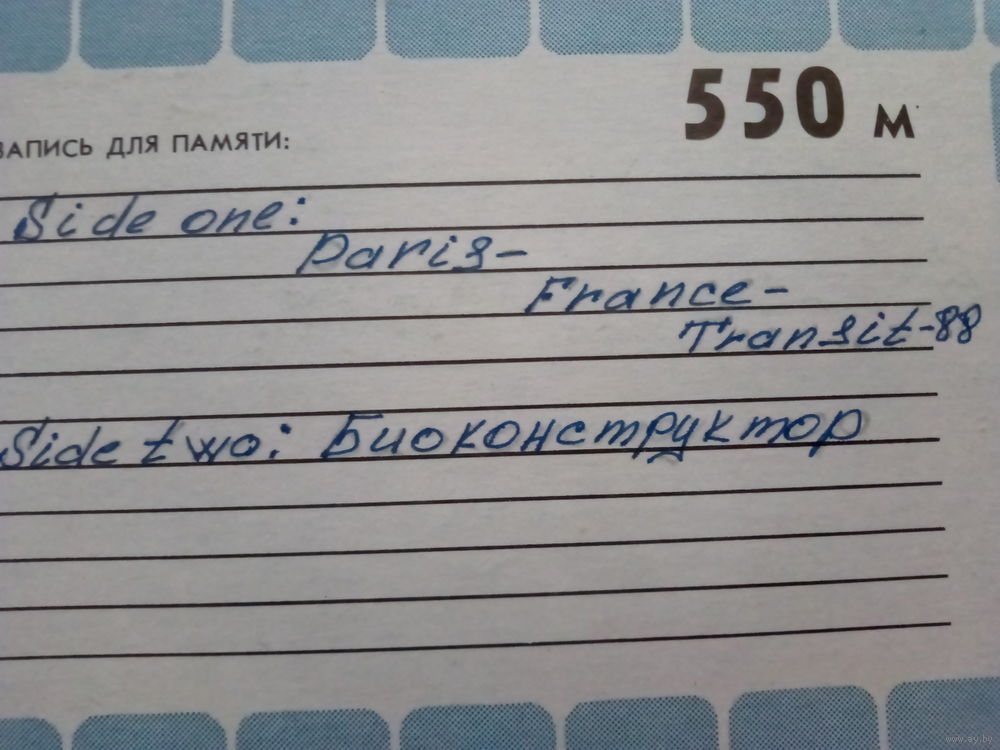 550 м
ЗАПИСЬ ДЛЯ ПАМЯТИ:
Side one:
Paris-
France-
Transit-88
Side two: Биоконструктор
www.ay.by